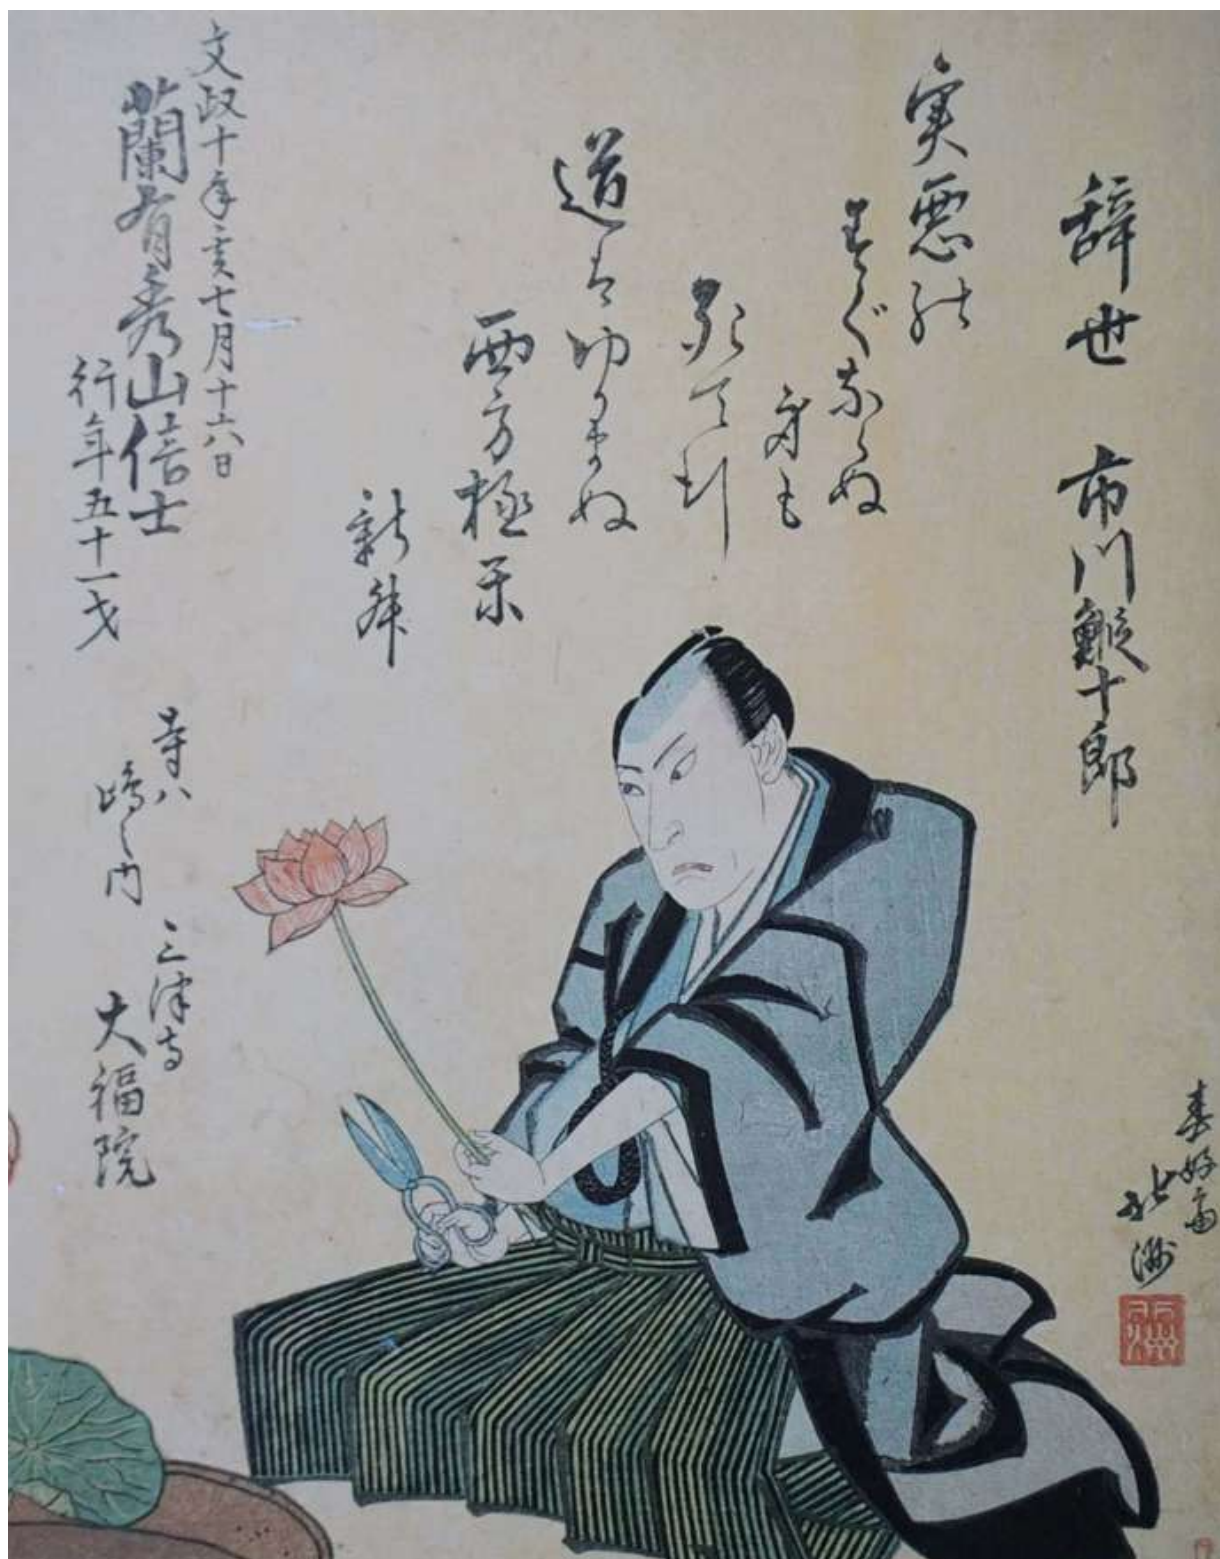 辞世 市川鰕十郎
実悪の
すぐならぬ
身も
て引
道はゆがまぬ
西方極楽
新舛
文政十年亥七月十六日
蘭有秀山信士
行年五十一才
寺ハ
嶋之内
三津寺
大福院
春好斎
北洲